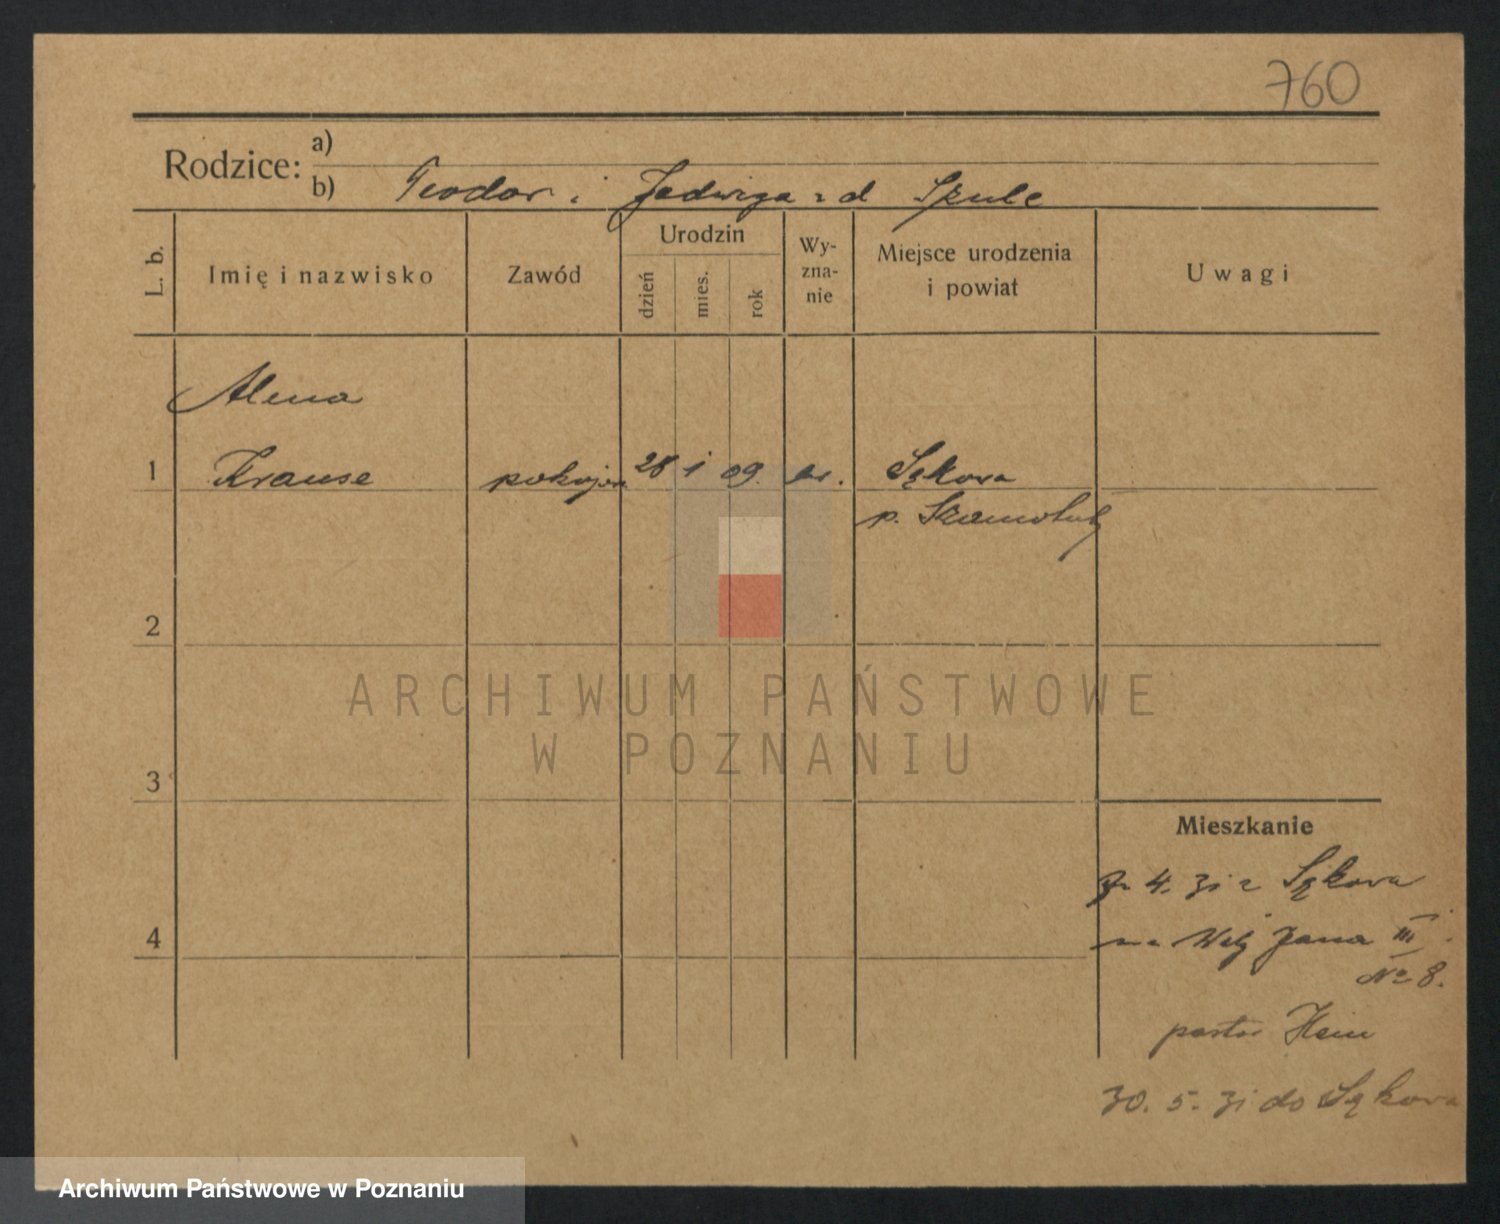 760
Rodzice:
a)
b) Teodor i Jadwiga z d Szulc
L. b.
Imię i nazwisko
Zawód
Urodzin
dzień
mies.
rok
Wy-
zna-
nie
Miejsce urodzenia
i powiat
Uwagi
Alma
1 Krause pokojow 28 1 09. ew. Sękowa
p. Szamotuły
2
3
4
ARCHIWUM PAŃSTWOWE
W POZNANIU
Mieszkanie
4. 31 z Sękowa
na Wały Jana III
No 8.
pastor Hein
30. 5. 31 do Sękowa
Archiwum Państwowe w Poznaniu